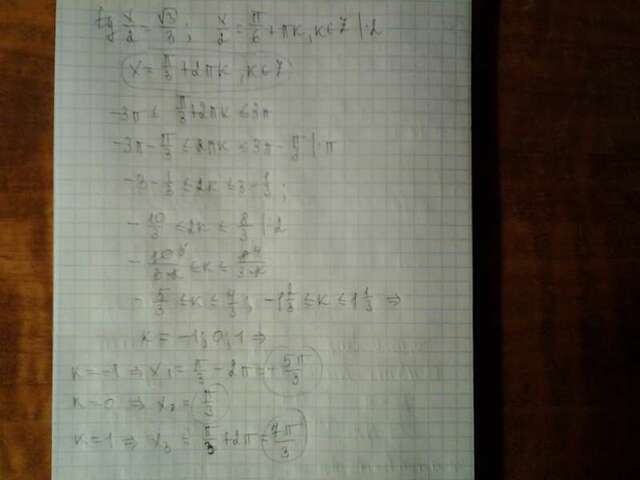 tg x/2 = √3/3; x/2 = π/6 + πk, k∈Z |·2
x = π/3 + 2πk, k∈Z
-3π ≤ π/3 + 2πk ≤ 3π
-3π - π/3 ≤ 2πk ≤ 3π - π/3 |:π
-3 - 1/3 ≤ 2k ≤ 3 - 1/3;
-10/3 ≤ 2k ≤ 8/3 |:2
≤ k ≤
-5/3 ≤ k ≤ 4/3; ≤ k ≤ 1 1/3 ⇒
k = -1; 0; 1 ⇒
k = -1 ⇒ x₁ = π/3 - 2π = -5π/3
k = 0 ⇒ x₂ = π/3
k = 1 ⇒ x₃ = π/3 + 2π = 7π/3